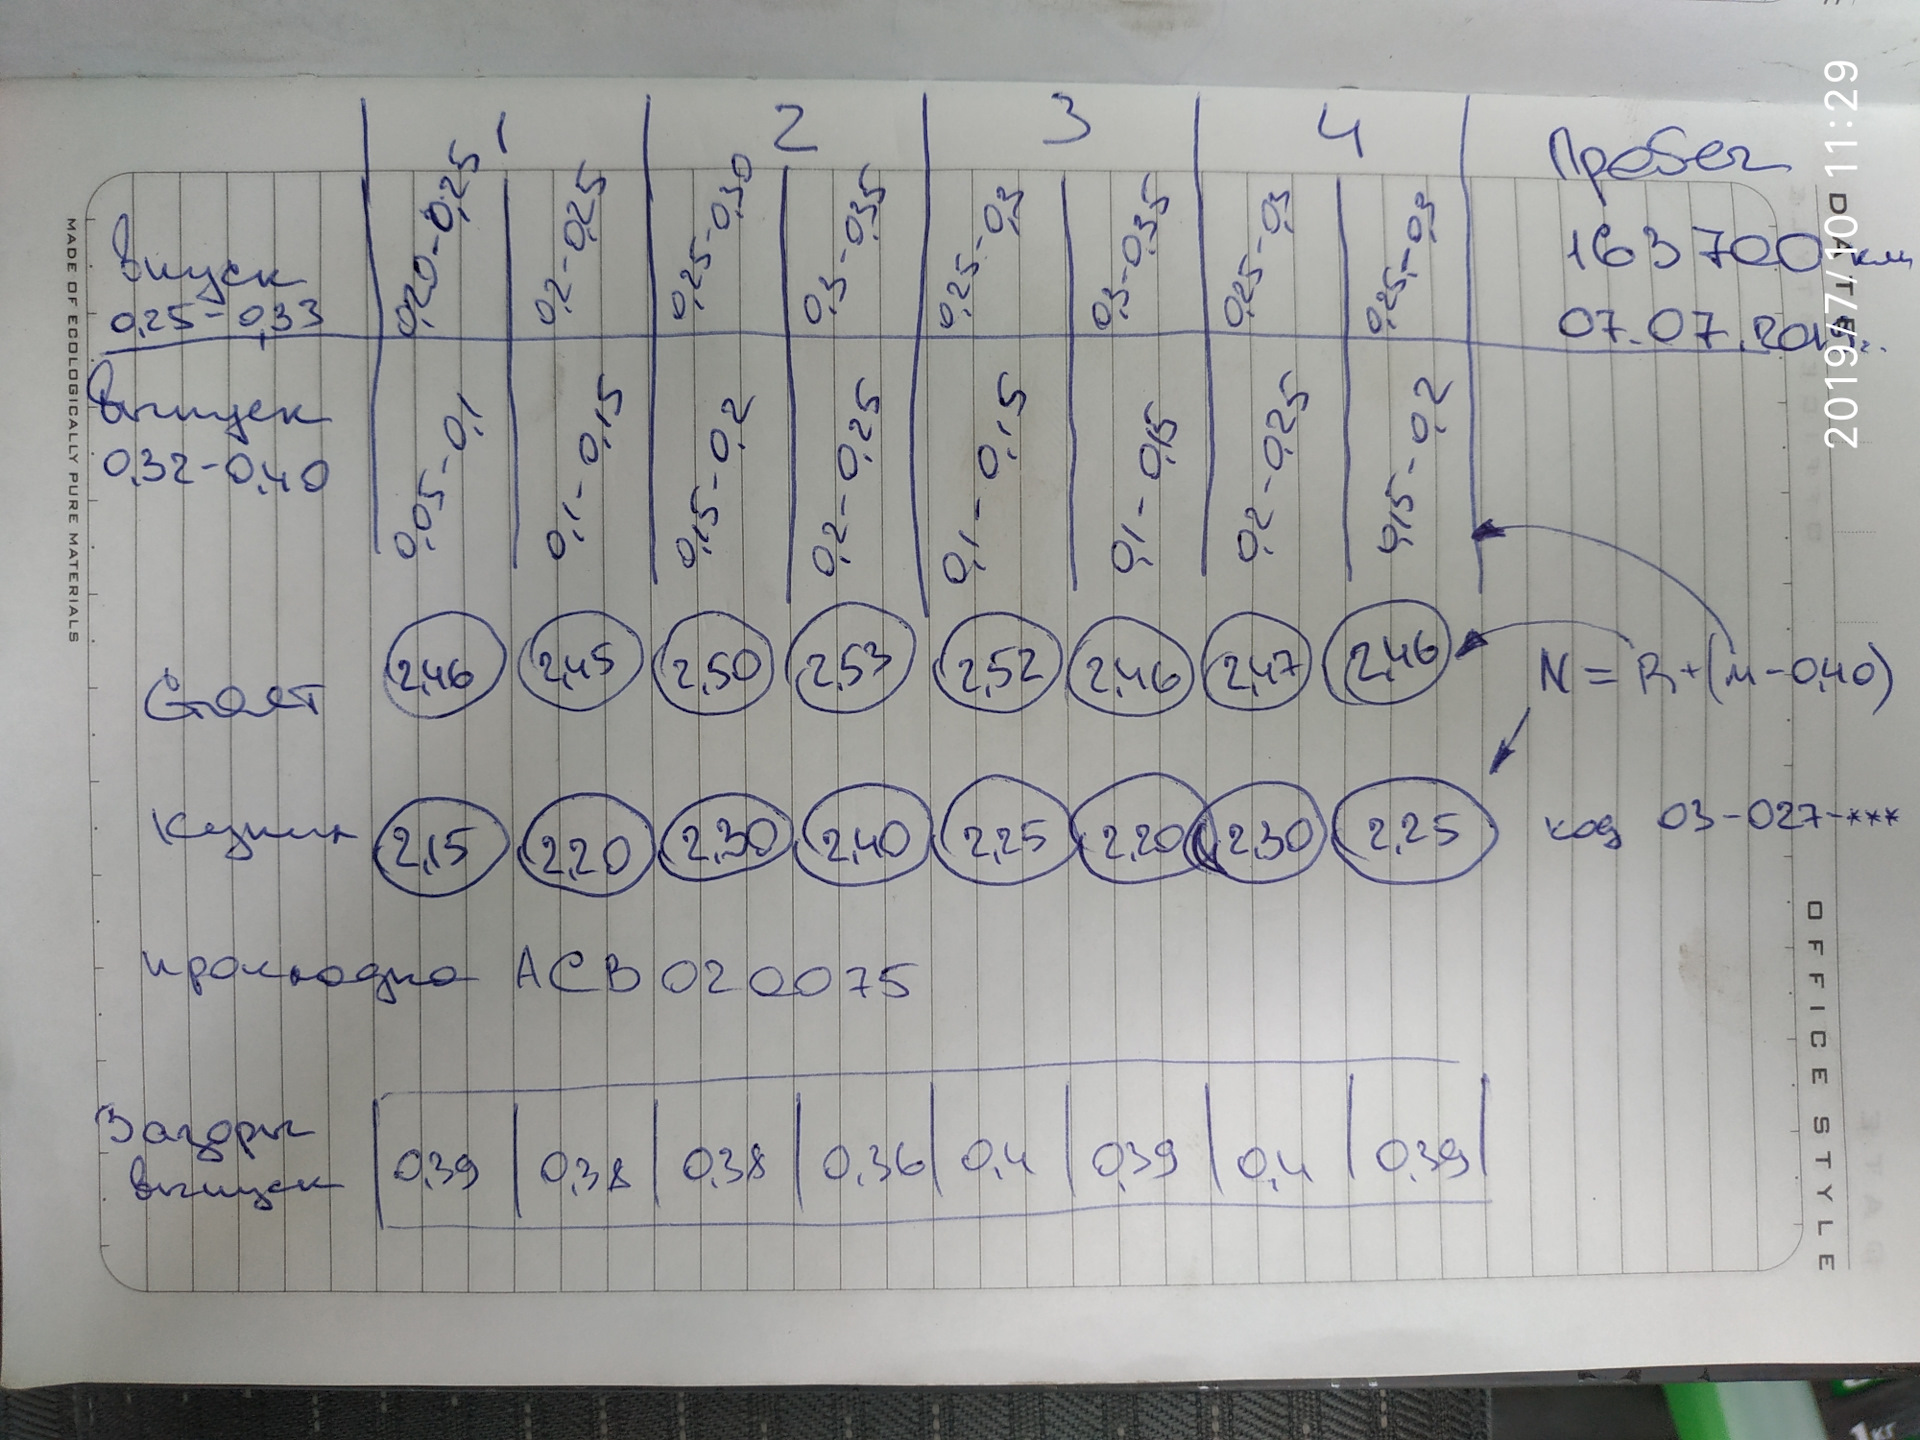 1 2 3 4 Пробег
Впуск 0,20-0,25 0,2-0,25 0,25-0,30 0,3-0,35 0,25-0,3 0,3-0,35 0,25-0,3 0,25-0,3 163 700 км
0,25-0,33 07.07.2019г.
Выпуск 0,05-0,1 0,1-0,15 0,15-0,2 0,2-0,25 0,1-0,15 0,1-0,15 0,2-0,25 0,15-0,2
0,32-0,40
Стоят 2,46 2,45 2,50 2,53 2,52 2,46 2,47 2,46 N = R+(м-0,40)
Купил 2,15 2,20 2,30 2,40 2,25 2,20 2,30 2,25 код 03-027-***
прокладка ACB 020075
Зазоры
выпуск 0,39 0,38 0,38 0,36 0,4 0,39 0,4 0,39
MADE OF ECOLOGICALLY PURE MATERIALS
DATE
OFFICE STYLE
2019/7/10 11:29
1кг